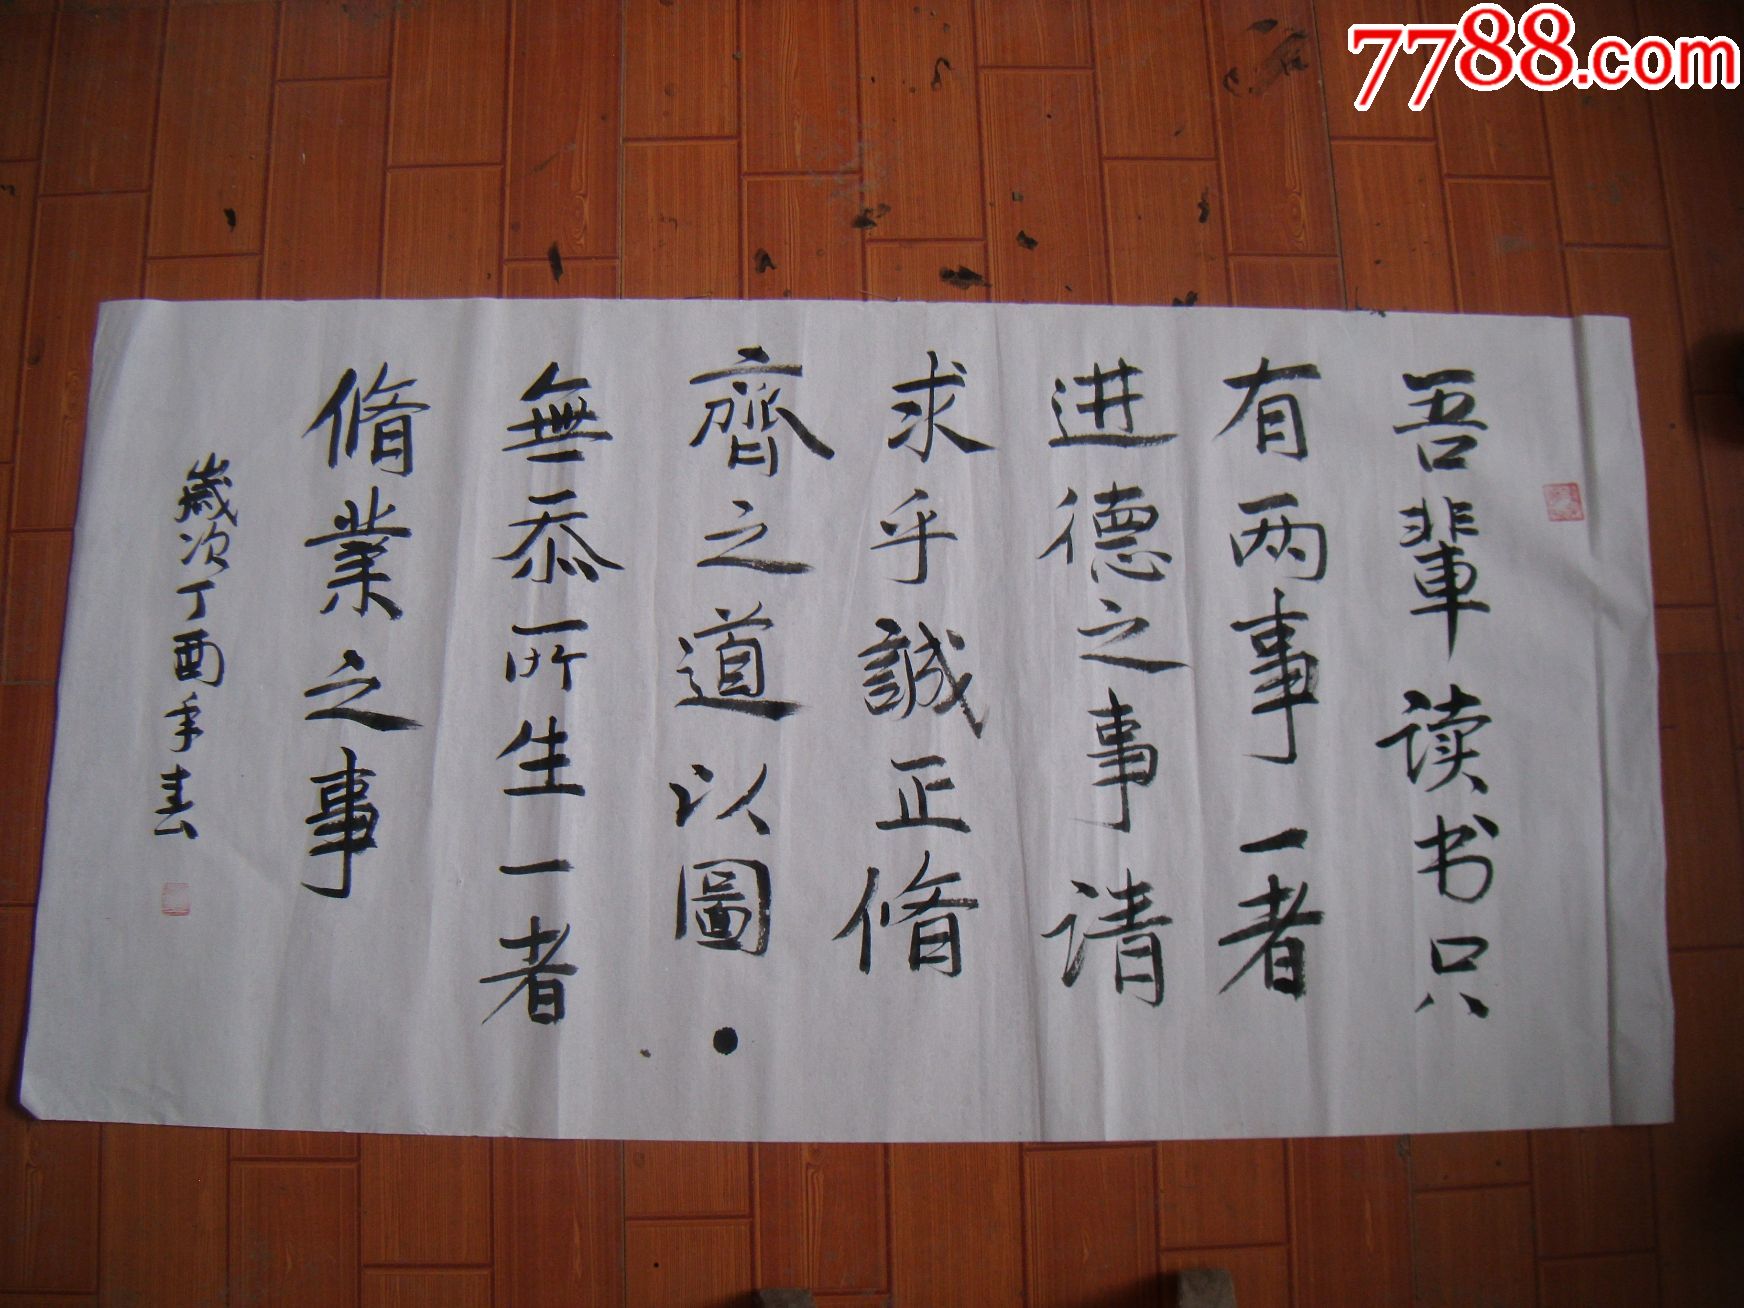 7788.com
吾輩读书只
有两事一者
进德之事请
求乎誠正脩
齊之道以圖·
無忝所生一者
脩業之事
歲次丁酉年春